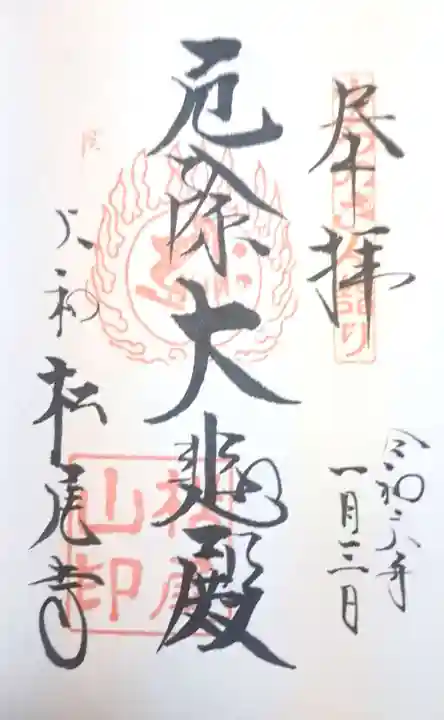 奉拝
令和六年
一月三日
厄除大悲殿
大和 松尾寺
松尾
山印